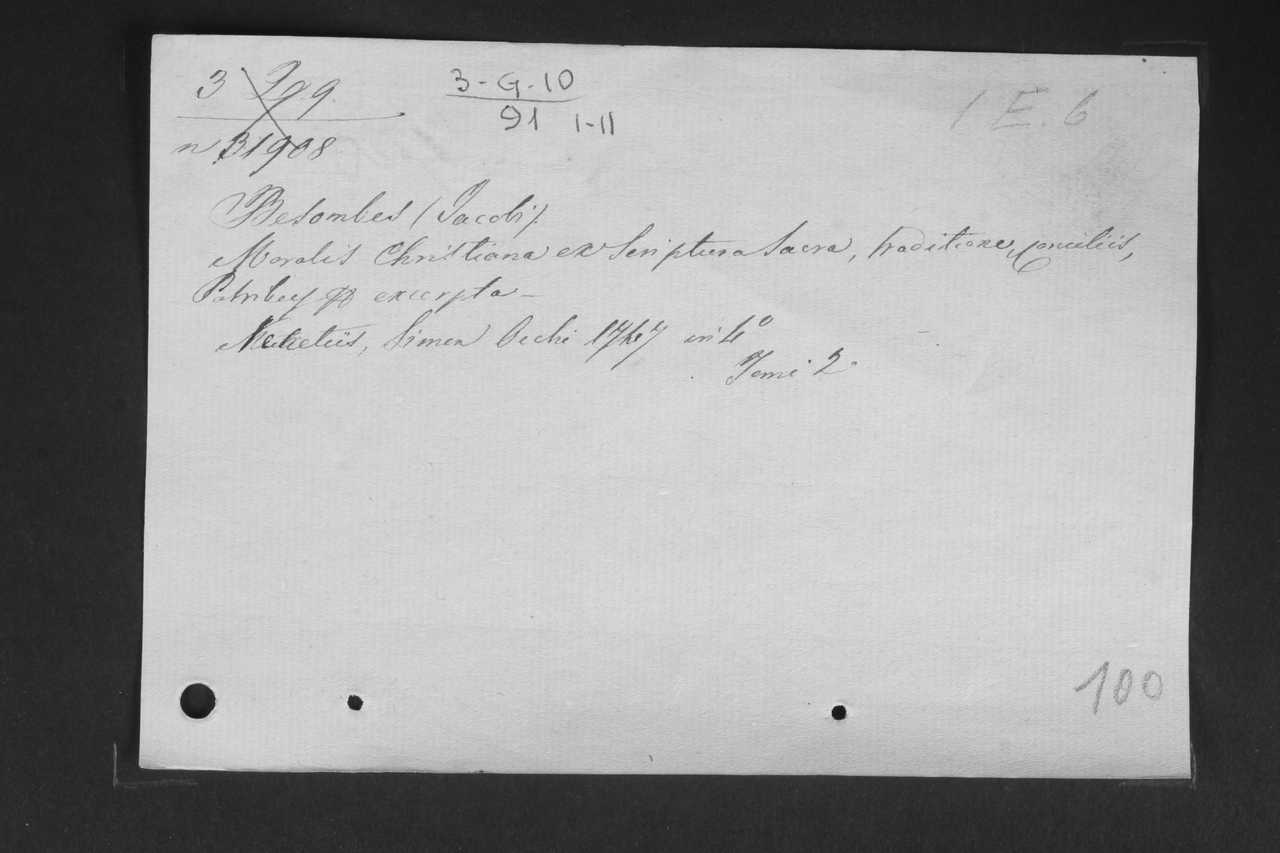 3 9.9. 3-G-10 1 E 6
n 31908 91 I-II
Besombes (Jacobi)
Moralis Christiana ex Scriptura Sacra, traditione, Conciliis,
Patribus excerpta -
Venetiis, Simon Occhi 1747 in 4º
Tomi 2.
100